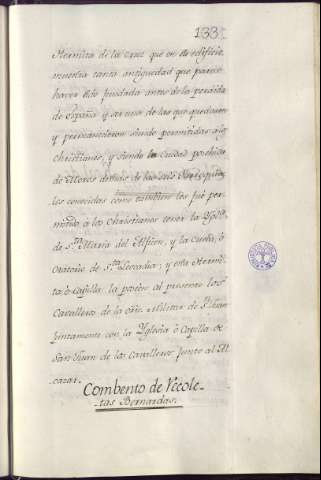 133
Hermita de la Cruz que en el edificio
muestra tanta antiguedad que parece
haver sido fundada antes de la perdida
de España y ser una de las que quedaron
y permanecieron siendo permitidas a los
christianos, y siendo la Ciudad posehida
de Moros demas de las seis Parroquias
las conocidas como tambien les fué per-
mitido à los Christianos tener la Ygle.
de Sta. Maria del Alficen, y la Cueba, ò
Oratorio de Sta. Leocadia; y esta Hermi-
ta ò Capilla la poseen al presente los
Cavalleros de la orn. Militar de Sn. Juan
juntamente con la Yglesia ò Capilla de
San Juan de los Cavalleros junto al Al-
cazar.
Combento de Recole-
tas Bernardas.